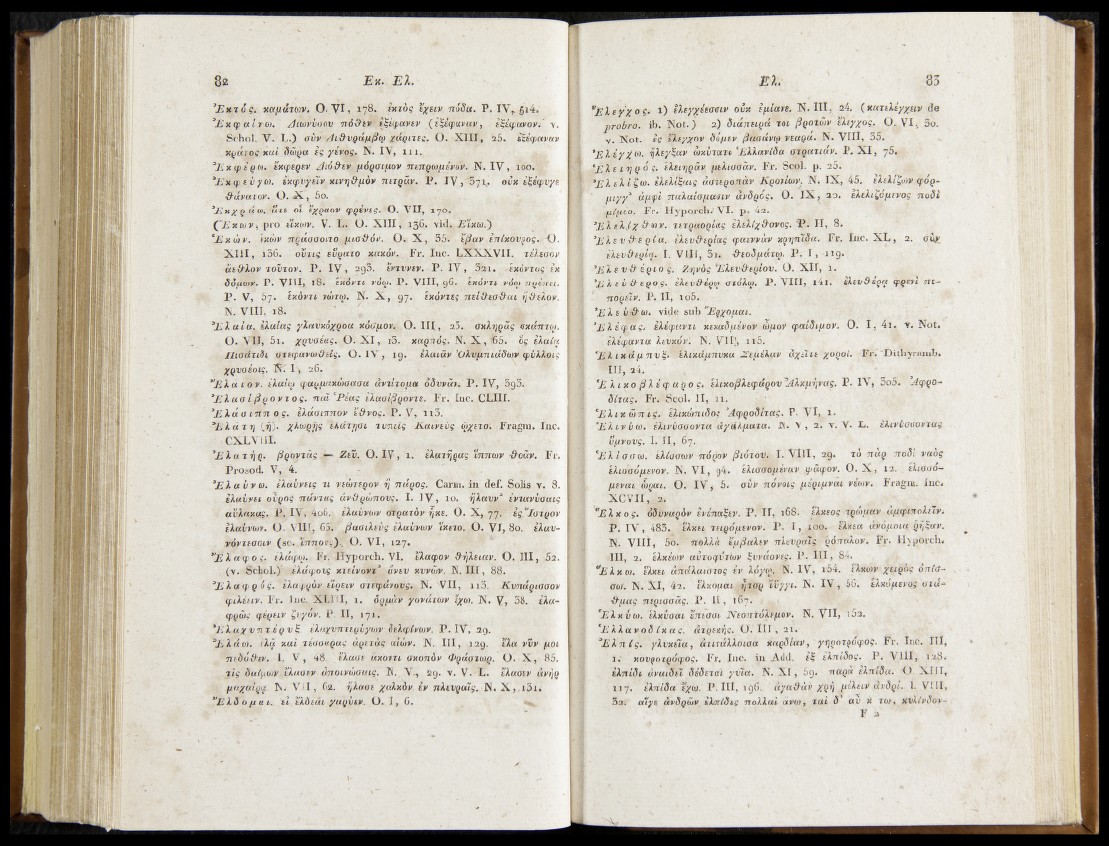 82 Εκ. Ελ.
Ἐκτός. καμάτων. O. VI, 178. ἐκτὸς ἔχειν πόδα. P. IV, 514.
Ἐκφαίνω. Διωνύσου πόθεν ἐξέφανεν (ἐξέφαναν, ἐξέφανον. v.
Schol. V. L.) σὺν Διθυράμβῳ χάριτες. O. XIII, 25. ἐξέφαναν
κράτος καὶ δῶρα ἐς γένος. N. IV, 111.
Ἐκφέρω. ἔκφερεν Διόθεν μόρσιμον πεπρωμένων. N. IV, 100.
Ἐκφεύγω. ἐκφυγεῖν κινηθμὸν πετρᾶν. P. IV, 371. οὐκ ἐξέφυγε
θάνατον. O. X, 50.
Ἐκχράω. ἅτε οἱ ἔχραον φρένες. O. VII, 170.
(Ἔκων, pro εἴκων. V. L. O. XIII, 136. vid. Εἴκω.)
Ἑκών. ἑκὼν πράσσοιτο μισθόν. O. X, 35. ἔβαν ἐπίκουρος. O.
XIII, 136. οὔτις εὕρατο κακόν. Fr. Inc. LXXXVII. τέλεσον
ἀέθλον τοῦτον. P. IV, 293. ἔντυνεν. P. IV, 321. ἑκόντος ἐκ
δόμων. P. VIII, 18. ἑκόντι νόῳ. P. VIII, 96. ἑκόντι νόῳ πρέπει.
P. V, 57. ἑκόντι νώτῳ. N. X, 97. ἑκόντες πείθεσθαι ἤθελον.
N. VIII, 18.
Ἐλαία. ἐλαίας γλαυκόχροα κόσμον. O. III, 23. σκληρᾶς σκάπτῳ.
O. VII, 51. χρυσέας. O. XI, 13. καρπός. N. X, 65. ὃς ἐλαίᾳ
Πισάτιδι στεφανωθείς. O. IV, 19. ἐλαιᾶν Ὀλυμπιάδων φύλλοις
χρυσέοις. N. I, 26.
Ἔλαιον. ἐλαίῳ φαρμακώσασα ἀντίτομα ὀδυνᾶν. P. IV, 393.
Ἐλασίβροντος. παῖ Ῥέας ἐλασίβροντε. Fr. Inc. CLIII.
Ἐλάσιππος. ἐλάσιππον ἔθνος. P. V, 113.
Ἐλάτη (ἡ). χλωρῇς ἐλάτῃσι τυπεὶς Καινεὺς ᾤχετο. Fragm. Inc.
CXLVIII.
Ἐλατήρ. βροντᾶς — Ζεῦ. O. IV, 1. ἐλατῆρας ἵππων θοῶν. Fr.
Prosod. V, 4.
Ἐλαύνω. ἐλαύνεις τι νεώτερον ἢ πάρος. Carm. in def. Solis v. 8.
ἐλαύνει οὖρος πάντας ἀνθρώπους. I. IV, 10. ἤλαυν᾽ ἐντανύσαις
αὔλακας. P. IV, 406. ἐλαύνων στρατὸν ἧκε. O. X, 77. ἐς Ἴστρον
ἐλαύνων. O. VIII, 63. βασιλεὺς ἐλαύνων ἵκετο. O. VI, 80. ἐλαυ-
νόντεσσιν (sc. ἵπποις). O. VI, 127.
Ἔλαφος. ἐλάφῳ. Fr. Hyporch. VI. ἔλαφον θήλειαν. O. III, 52.
(v. Schol.) ἐλάφους κτείνοντ᾽ ἄνευ κυνῶν. N. III, 88.
Ἐλαφρός. ἐλαφρὸν εἴρειν στεφάνους. N. VII, 113. Κυπάρισσον
φιλέειν. Fr. Inc. XLIII, 1. ὁρμὰν γονάτων ἔχω. N. V, 38. ἐλα-
φρῶς φέρειν ζυγόν. P. II, 171.
Ἐλαχυπτέρυξ. ἐλαχυπτερύγων δελφίνων. P. IV, 29.
Ἐλάω. ἐλᾷ καὶ τέσσαρας ἀρετὰς αἰών. N. III, 129. ἔλα νῦν μοι
πεδόθεν. I. V, 48. ἔλασε ἄκοντι σκοπὸν Φράστωρ. O. X, 85.
τὶς δαίμων ἔλασεν ἀποινώσαις. N. V., 29. v. V. L. ἔλασεν ἀνὴρ
μαχαίρᾳ. N. VII, 62. ἤλασε χαλκὸν ἐν πλευραῖς. N. X, 131.
Ἔλδομαι. εἰ ἔλδεαι γαρύεν. O. I, 6.
Ελ. 83
Ἔλεγχος. 1) ἐλεγχέεσσιν οὐκ ἐμίανε. N. III, 24. (κατελέγχειν de
probro. ib. Not.) 2) διάπειρά τοι βροτῶν ἔλεγχος. O. VI, 30.
v. Not. ἐς ἔλεγχον δόμεν βασάνῳ νεαρά. N. VIII, 35.
Ἐλέγχω. ἤλεγξαν ὠκύτατι Ἑλλανίδα στρατιάν. P. XI, 75.
Ἐλειηρός. ἐλειηρᾶν μελισσᾶν. Fr. Scol. p. 25.
Ἐλελίζω. ἐλελίξαις ἀστεροπὰν Κρονίων. N. IX, 45. ἐλελίζων φόρ-
μιγγ᾽ ἀμφὶ παλαίσμασιν ἀνδρός. O. IX, 20. ἐλελιζόμενος ποδὶ
μίμεο. Fr. Hyporch. VI. p. 42.
Ἐλελίχθων. τετραορίας ἐλελίχθονος. P. II, 8.
Ἐλευθερία. ἐλευθερίας φαεννὰν κρηπῖδα. Fr. Inc. XL, 2. σὺν
ἐλευθερίᾳ. I. VIII, 31. θεοδμάτῳ. P. I, 119.
Ἐλευθέριος. Ζηνὸς Ἐλευθερίου. O. XII, 1.
Ἐλεύθερος. ἐλευθέρῳ στόλῳ. P. VIII, 141. ἐλευθέρᾳ φρενὶ πε-
πορεῖν. P. II, 105.
Ἐλεύθω. vide sub Ἔρχομαι.
Ἐλέφας. ἐλέφαντι κεκαδμένον ὦμον φαίδιμον. O. I, 41. v. Not.
ἐλέφαντα λευκόν. N. VII, 115.
Ἑλικάμπυξ. ἑλικάμπυκα Σεμέλαν ἀχεῖτε χοροί. Fr. Dithyramb.
III, 24.
Ἑλικοβλέφαρος. ἑλικοβλεφάρου Ἀλκμήνας. P. IV, 305. Ἀφρο-
δίτας. Fr. Scol. II, 11.
Ἑλικῶπις. ἑλικώπιδος Ἀφροδίτας. P. VI, 1.
Ἐλινύω. ἐλινύσοντα ἀγάλματα. N. V, 2. v. V. L. ἐλινύσοντας
ὕμνους. I. II, 67.
Ἑλίσσω. ἑλίσσων πόρον βιότου. I. VIII, 29. τὸ πὰρ ποδὶ ναὸς
ἑλισσόμενον. N. VI, 94. ἑλισσομέναν ψᾶφον. O. X, 12. ἑλισσό-
μεναι ὧραι. O. IV, 5. σὺν πόνοις μέριμναι νέων. Fragm. Inc.
XCVII, 2.
Ἕλκος. ὀδυναρὸν ἐνέπαξεν. P. II, 168. ἕλκεος τρώμαν ἀμφιπολεῖν.
P. IV, 483. ἕλκει τειρόμενον. P. I, 100. ἕλκεα ἀνόμοια ῥῆξαν.
N. VIII, 50. πολλὰ ἔμβαλεν πλευραῖς ῥόπαλον. Fr. Hyporch.
III, 2. ἑλκέων αὐτοφύτων ξυνάονες. P. III, 84.
Ἕλκω. ἕλκει ἀπάλαιστος ἐν λόγῳ. N. IV, 154. ἕλκων χειρὸς ὀπίσ-
σω. N. XI, 42. ἕλκομαι ἦτορ ἴϋγγι. N. IV, 56. ἑλκόμενος στά-
θμας περισσᾶς. P. II, 167.
Ἑλκύω. ἑλκύσαι ἔπεσσι Νεοπτόλεμον. N. VII, 152.
Ἑλλανοδίκας. ἀτρεκής. O. III, 21.
Ἐλπίς. γλυκεῖα, ἀτιτάλλοισα καρδίαν, γηροτρόφος. Fr. Inc. III,
1. κουροτρόφος. Fr. Inc. in Add. ἐξ ἐλπίδος. P. VIII, 128.
ἐλπίδι ἀναιδεῖ δέδεται γυῖα. N. XI, 59. παρὰ ἐλπίδα. O. XIII,
117. ἐλπίδα ἔχω. P. III, 196. ἀγαθὰν χρὴ μέλειν ἀνδρί. I. VIII,
32. αἵγε ἀνδρῶν ἐλπίδες πολλαὶ ἄνω, ταὶ δ᾽ αὖ κάτω, κυλίνδον-
F 2